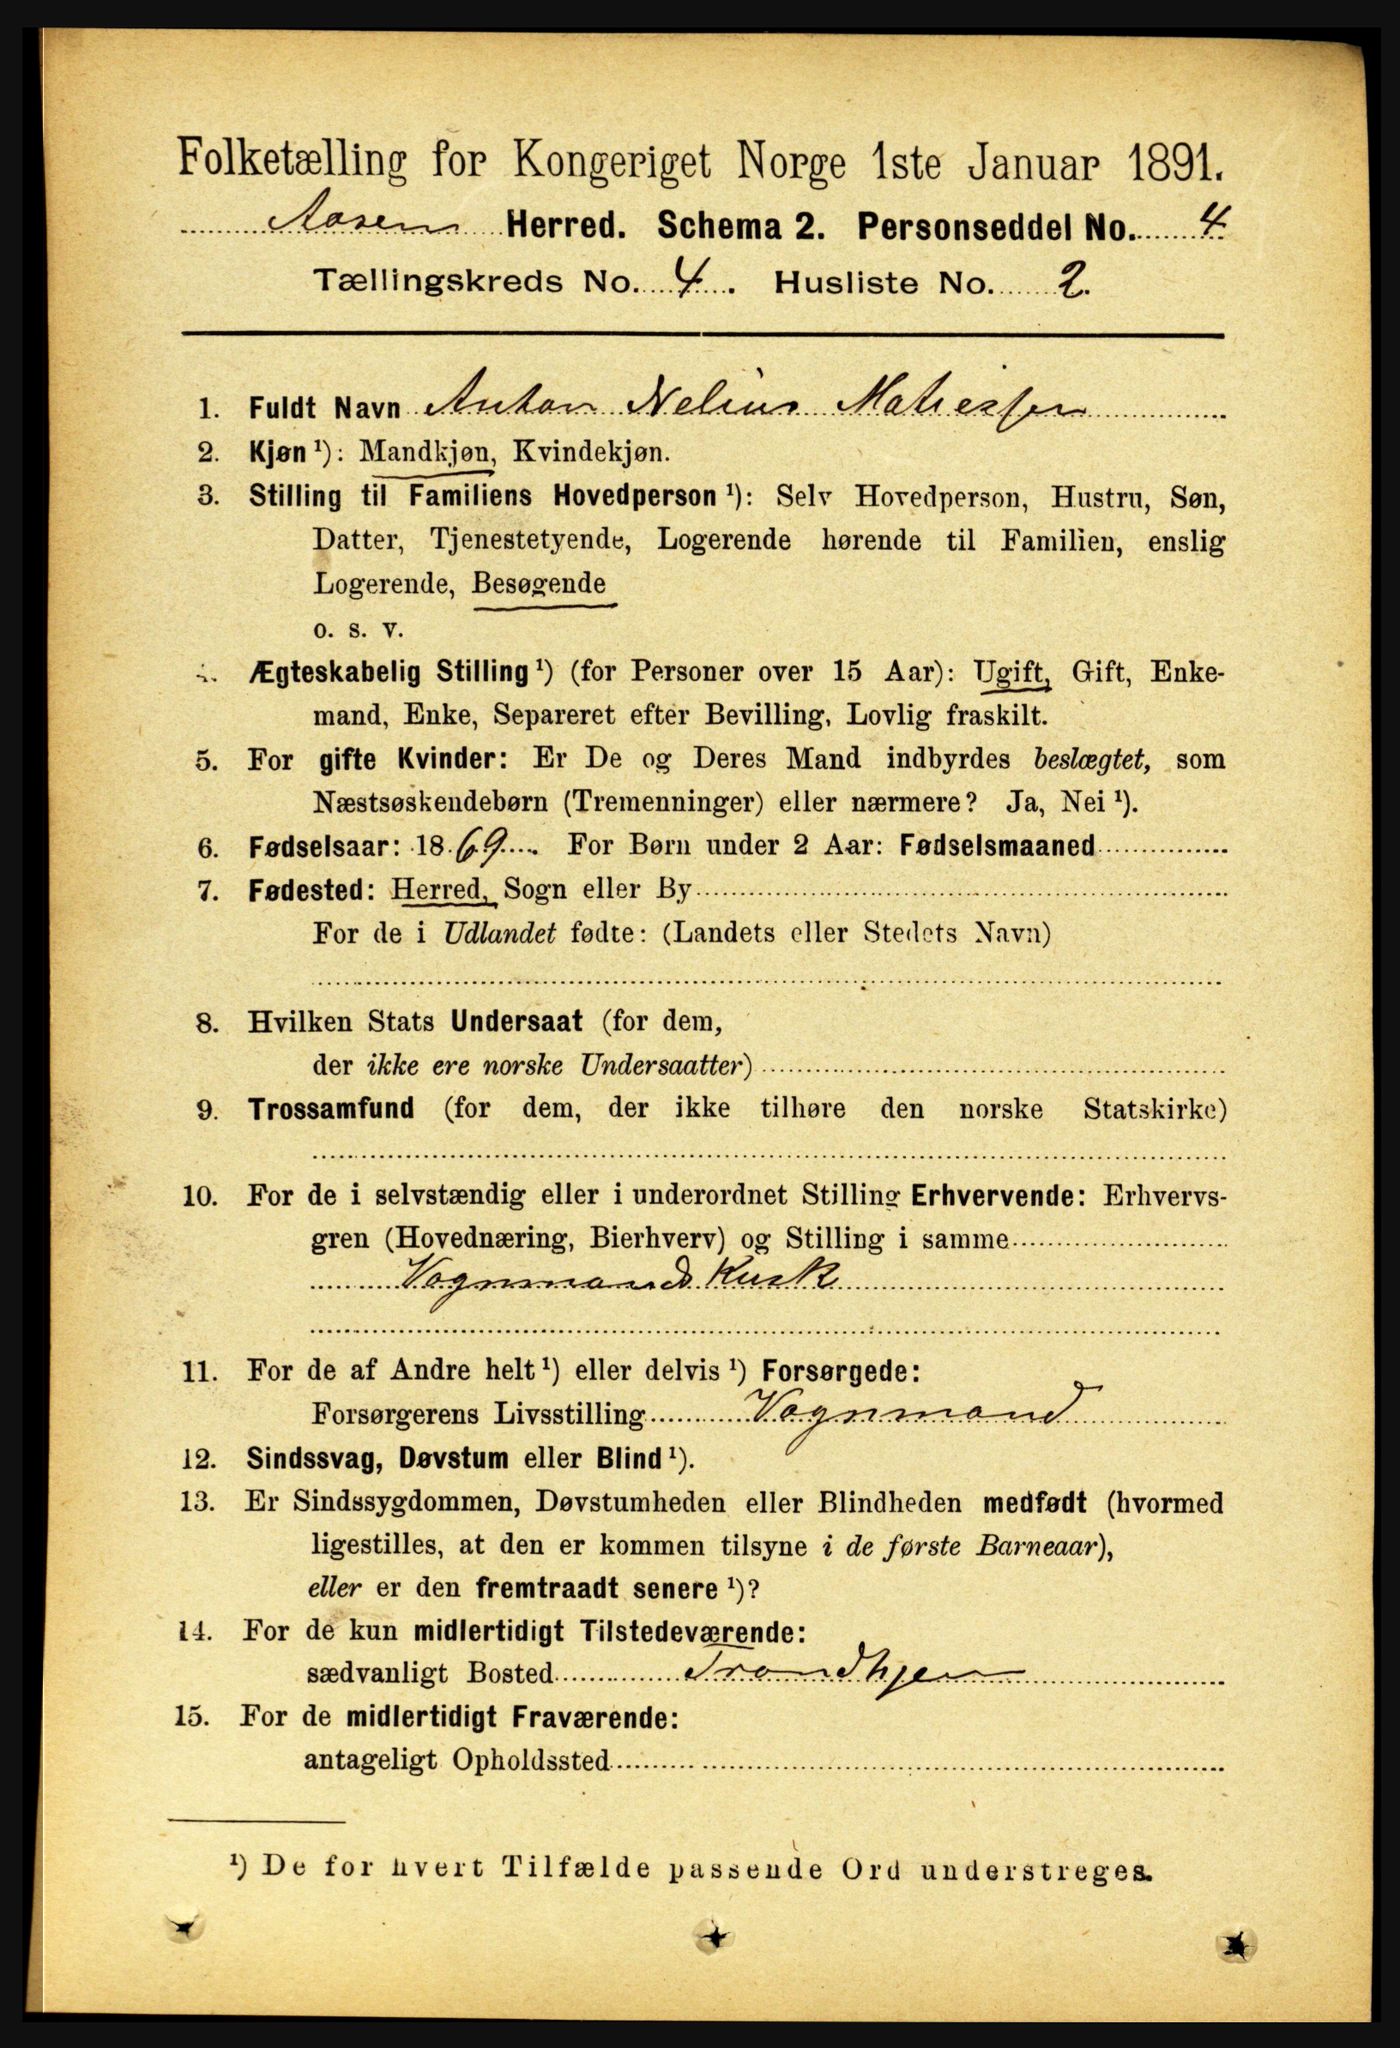 Folketælling for Kongeriget Norge 1ste Januar 1891.
Aasen Herred. Schema 2. Personseddel No. 4
Tællingskreds No. 4. Husliste No. 2.
1. Fuldt Navn Anton Nelius Matiessen
2. Kjøn ¹): Mandkjøn, Kvindekjøn.
3. Stilling til Familiens Hovedperson ¹): Selv Hovedperson, Hustru, Søn,
Datter, Tjenestetyende, Logerende hørende til Familien, enslig
Logerende, Besøgende
o. s. v.
4. Ægteskabelig Stilling ¹) (for Personer over 15 Aar): Ugift, Gift, Enke-
mand, Enke, Separeret efter Bevilling, Lovlig fraskilt.
5. For gifte Kvinder: Er De og Deres Mand indbyrdes beslægtet, som
Næstsøskendebørn (Tremenninger) eller nærmere? Ja, Nei ¹).
6. Fødselsaar: 1869. For Børn under 2 Aar: Fødselsmaaned
7. Fødested: Herred, Sogn eller By
For de i Udlandet fødte: (Landets eller Stedets Navn)
8. Hvilken Stats Undersaat (for dem,
der ikke ere norske Undersaatter)
9. Trossamfund (for dem, der ikke tilhøre den norske Statskirke)
10. For de i selvstændig eller i underordnet Stilling Erhvervende: Erhvervs-
gren (Hovednæring, Bierhverv) og Stilling i samme
Vognmands Kusk
11. For de af Andre helt ¹) eller delvis ¹) Forsørgede:
Forsørgerens Livsstilling Vognmand
12. Sindssvag, Døvstum eller Blind ¹).
13. Er Sindssygdommen, Døvstumheden eller Blindheden medfødt (hvormed
ligestilles, at den er kommen tilsyne i de første Barneaar),
eller er den fremtraadt senere ¹)?
14. For de kun midlertidigt Tilstedeværende:
sædvanligt Bosted Trondhjem
15. For de midlertidigt Fraværende:
antageligt Opholdssted
¹) De for hvert Tilfælde passende Ord understreges.